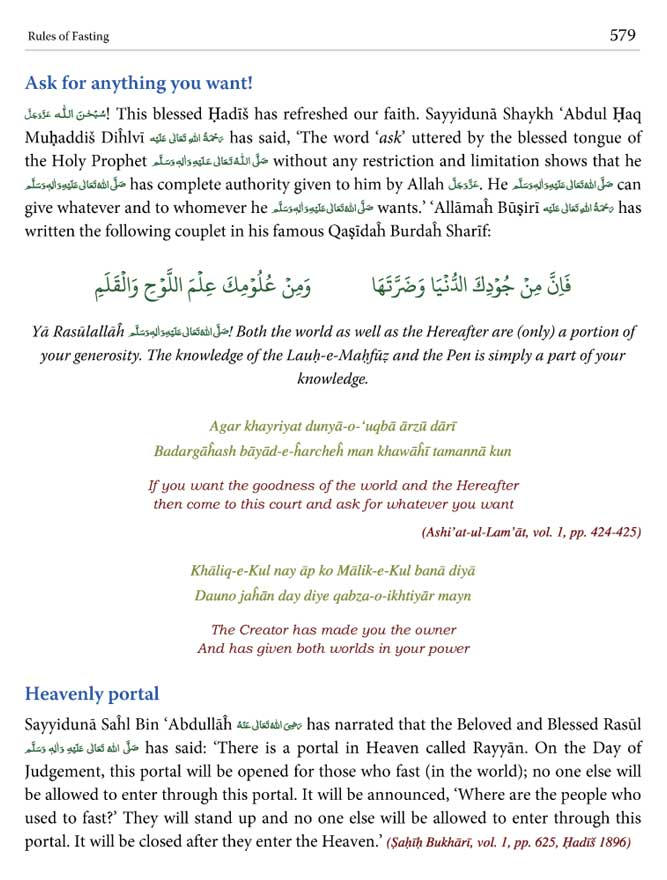 Rules of Fasting 579
Ask for anything you want!
سُبْحٰنَ اللّٰه عَزَّوَجَلَّ! This blessed Ḥadīš has refreshed our faith. Sayyidunā Shaykh ‘Abdul Ḥaq
Muḥaddiš Diĥlvī رَحْمَةُ اللهِ تَعَالٰی عَلَيْه has said, ‘The word ‘ask’ uttered by the blessed tongue of
the Holy Prophet صَلَّى اللهُ تَعَالٰى عَلَيْهِ وَاٰلِهٖ وَسَلَّم without any restriction and limitation shows that he
صَلَّى اللهُ تَعَالٰى عَلَيْهِ وَاٰلِهٖ وَسَلَّم has complete authority given to him by Allah عَزَّوَجَلَّ. He صَلَّى اللهُ تَعَالٰى عَلَيْهِ وَاٰلِهٖ وَسَلَّم can
give whatever and to whomever he صَلَّى اللهُ تَعَالٰى عَلَيْهِ وَاٰلِهٖ وَسَلَّم wants.’ ‘Allāmaĥ Būṣirī رَحْمَةُ اللهِ تَعَالٰی عَلَيْه has
written the following couplet in his famous Qaṣīdaĥ Burdaĥ Sharīf:
فَاِنَّ مِنْ جُوْدِكَ الدُّنْيَا وَضَرَّتَهَا وَمِنْ عُلُوْمِكَ عِلْمَ اللَّوْحِ وَالْقَلَمِ
Yā Rasūlallāĥ صَلَّى اللهُ تَعَالٰى عَلَيْهِ وَاٰلِهٖ وَسَلَّم! Both the world as well as the Hereafter are (only) a portion of
your generosity. The knowledge of the Lauḥ-e-Maḥfūẓ and the Pen is simply a part of your
knowledge.
Agar khayriyat dunyā-o-‘uqbā ārzū dārī
Badargāĥash bāyād-e-ĥarcheĥ man khawāĥī tamannā kun
If you want the goodness of the world and the Hereafter
then come to this court and ask for whatever you want
(Ashi’at-ul-Lam’āt, vol. 1, pp. 424-425)
Khāliq-e-Kul nay āp ko Mālik-e-Kul banā diyā
Dauno jaĥān day diye qabza-o-ikhtiyār mayn
The Creator has made you the owner
And has given both worlds in your power
Heavenly portal
Sayyidunā Saĥl Bin ‘Abdullāĥ رَضِیَ اللهُ تَعَالٰی عَنْهُ has narrated that the Beloved and Blessed Rasūl
صَلَّى اللهُ تَعَالٰى عَلَيْهِ وَاٰلِهٖ وَسَلَّم has said: ‘There is a portal in Heaven called Rayyān. On the Day of
Judgement, this portal will be opened for those who fast (in the world); no one else will
be allowed to enter through this portal. It will be announced, ‘Where are the people who
used to fast?’ They will stand up and no one else will be allowed to enter through this
portal. It will be closed after they enter the Heaven.’ (Ṣaḥīḥ Bukhārī, vol. 1, pp. 625, Ḥadīš 1896)